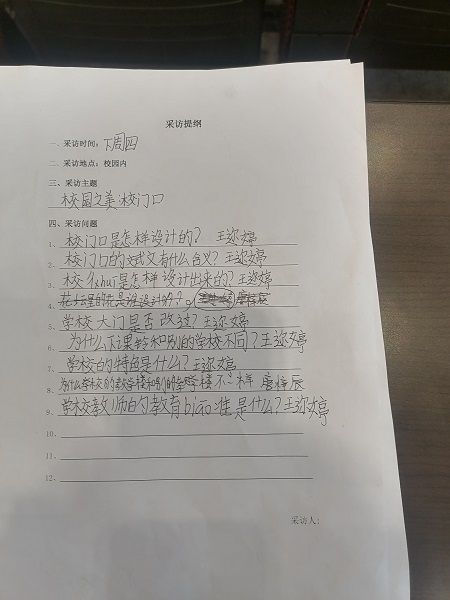 采访提纲
一、采访时间：下周四
二、采访地点：校园内
三、采访主题
校园之美：校门口
四、采访问题
1、校门口是怎样设计的？王弥婷
2、校门口的对联有什么含义？王弥婷
3、校huī是怎样设计出来的？王弥婷
4、花坛里的花是谁设计的？
5、学校大门是否改过？王弥婷
6、为什么下课铃和别的学校不同？王弥婷
7、学校的特色是什么？王弥婷
8、为什么学校的教学楼和别的教学楼不一样 唐梓辰
9、学校教师的教育biāo准是什么？王弥婷
10、
11、
12、
采访人：